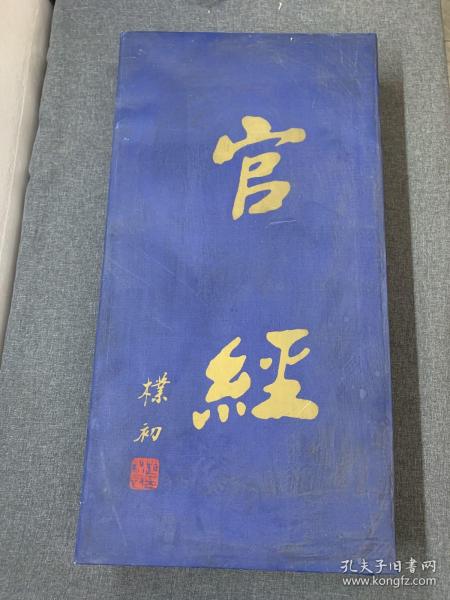 官經
樸初
孔夫子旧书网
www.kongfz.com